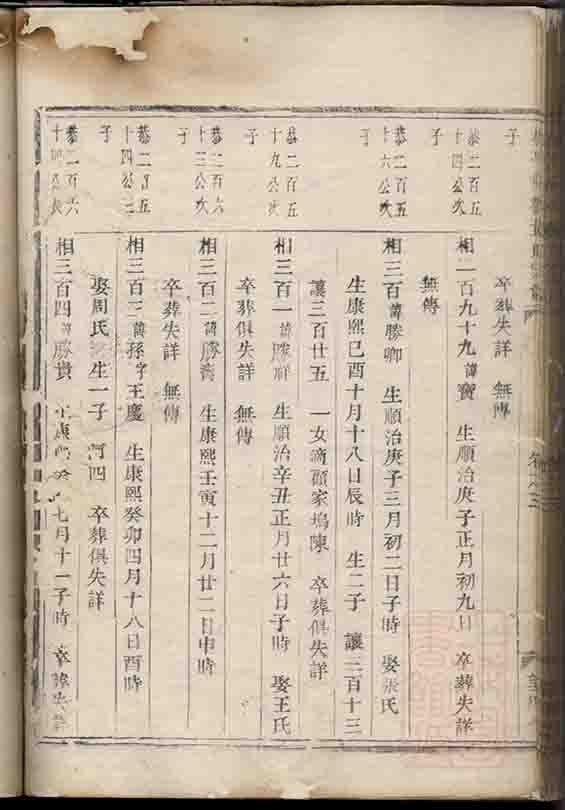 子
卒葬失詳 無傳
恭二百五
十四公次
子
相二百九十九諱寶 生順治庚子正月初九日 卒葬失詳
無傳
恭二百五
十六公次
子
相三百諱勝卿 生順治庚子三月初二日子時 娶張氏
生康熙己酉十月十八日辰時 生二子 讓三百十三
讓三百廿五 一女適顧家塢陳 卒葬俱失詳
恭二百五
十九公次
子
相三百一諱勝祥 生順治辛丑正月廿六日子時 娶王氏
卒葬俱失詳 無傳
恭二百六
十三公次
子
相三百二諱勝齊 生康熙壬寅十二月廿二日申時
卒葬失詳 無傳
恭二百五
十四公三
子
相三百三諱孫字王慶 生康熙癸卯四月十八日酉時
娶周氏 生一子 阿四 卒葬俱失詳
恭二百六
十四公長
子
相三百四諱勝貴 生康熙癸卯七月十一子時 卒葬失詳